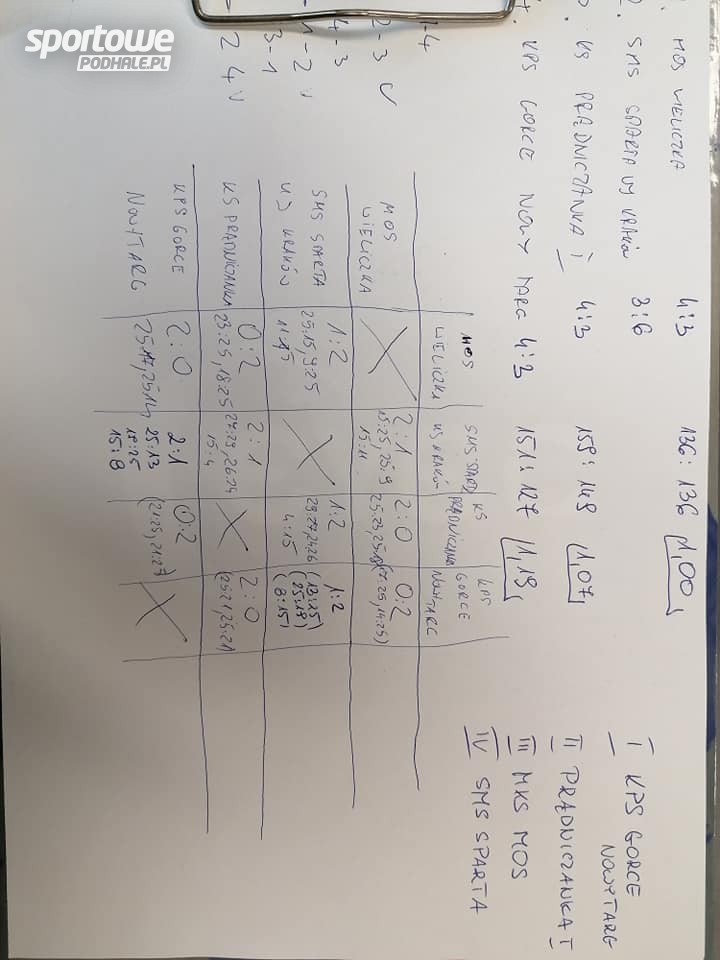 sportowe
PODHALE.PL
MOS WIELICZKA 4:3 136:136 1,00
2. SMS SPARTA UJ KRAKÓW 3:6
KS PRĄDNICZANKA I 4:3 159:148 1,07
KPS GORCE NOWY TARG 4:3 151:127 1,19
I KPS GORCE
NOWY TARG
II PRĄDNICZANKA I
III MKS MOS
IV SMS SPARTA
1-4
2-3 V
4-3
1-2 V
3-1
2 4 V
MOS WIELICZKA
SMS SPARTA UJ KRAKÓW
KS PRĄDNICZANKA
KPS GORCE NOWY TARG
MOS WIELICZKA
X
2:1
15:25, 25:9
15:11
2:0
0:2
SMS SPARTA
UJ KRAKÓW
1:2
25:15, 9:25
11:15
X
1:2
28:27, 24:26
4:15
1:2
(13:25)
(25:18)
(8:15)
KS PRĄDNICZANKA
0:2
23:25, 18:25
2:1
27:29, 26:24
15:4
X
2:0
(25:21, 25:21)
KPS GORCE
NOWY TARG
2:0
25:17, 25:14
2:1
25:13
18:25
15:8
0:2
(21:25, 21:27)
X